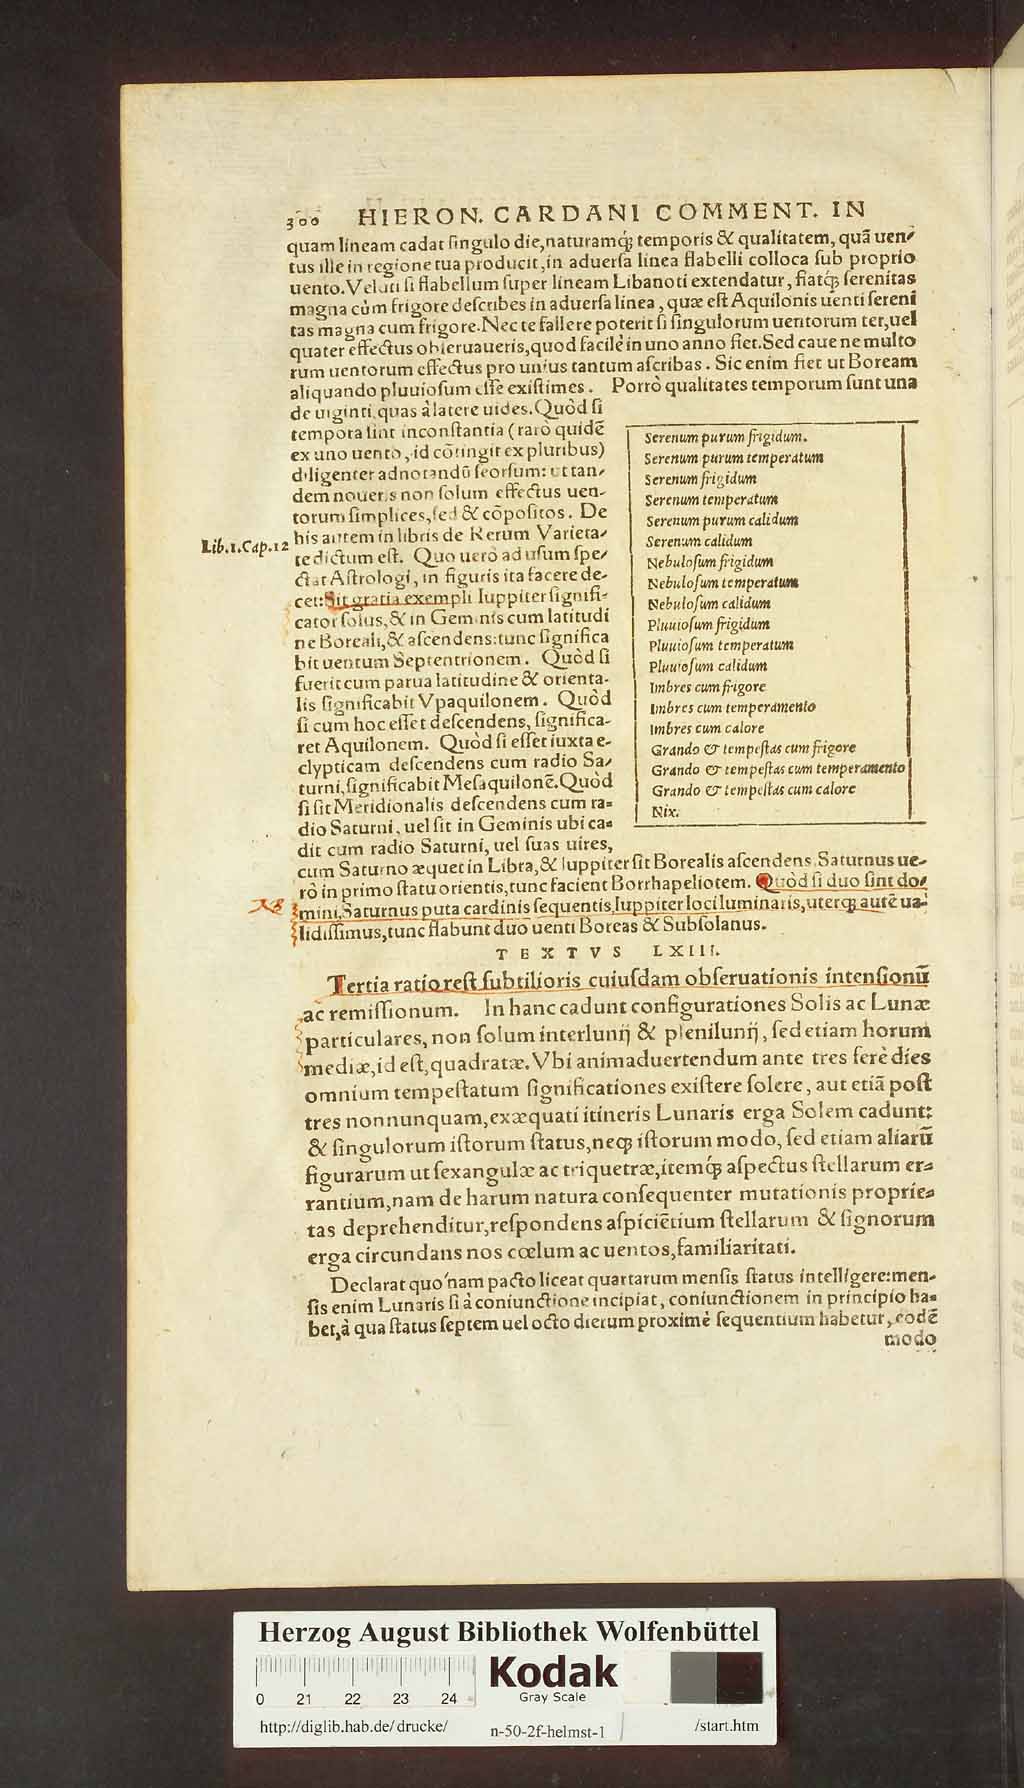 300 HIERON. CARDANI COMMENT. IN
quam lineam cadat singulo die, naturamq́; temporis & qualitatem, quã uen-
tus ille in regione tua producit, in aduersa linea flabelli colloca sub proprio
uento. Veluti si flabellum super lineam Libanoti extendatur, fiatq́; serenitas
magna cùm frigore describes in aduersa linea, quæ est Aquilonis uenti sereni
tas magna cum frigore. Nec te fallere poterit si singulorum uentorum ter, uel
quater effectus obseruaueris, quod facilè in uno anno fiet. Sed caue ne multo
rum uentorum effectus pro unius tantum ascribas. Sic enim fiet ut Boream
aliquando pluuiosum esse existimes. Porrò qualitates temporum sunt una
de uiginti, quas à latere uides. Quòd si
tempora sint inconstantia (rarò quidẽ
ex uno uento, id cõtingit ex pluribus)
diligenter adnotandũ seorsum: ut tan-
dem noueris non solum effectus uen-
torum simplices, sed & cõpositos. De
his autem in libris de Rerum Varieta-
te dictum est. Quo uerò ad usum spe-
ctat Astrologi, in figuris ita facere de-
cet: Sit gratia exempli Iuppiter signifi-
cator solus, & in Geminis cum latitudi
ne Boreali, & ascendens: tunc significa
bit uentum Septentrionem. Quòd si
fuerit cum parua latitudine & orienta-
lis significabit Vpaquilonem. Quòd
si cum hoc esset descendens, significa-
ret Aquilonem. Quòd si esset iuxta e-
clypticam descendens cum radio Sa-
turni, significabit Mesaquilonẽ. Quòd
si sit Meridionalis descendens cum ra-
dio Saturni, uel sit in Geminis ubi ca-
dit cum radio Saturni, uel suas uires,
Lib. 1. Cap. 12
Serenum purum frigidum.
Serenum purum temperatum
Serenum frigidum
Serenum temperatum
Serenum purum calidum
Serenum calidum
Nebulosum frigidum
Nebulosum temperatum
Nebulosum calidum
Pluuiosum frigidum
Pluuiosum temperatum
Pluuiosum calidum
Imbres cum frigore
Imbres cum temperamento
Imbres cum calore
Grando & tempestas cum frigore
Grando & tempestas cum temperamento
Grando & tempestas cum calore
Nix.
cum Saturno æquet in Libra, & Iuppiter sit Borealis ascendens, Saturnus ue-
rò in primo statu orientis, tunc facient Borrhapeliotem. Quòd si duo sint do-
mini, Saturnus puta cardinis sequentis, Iuppiter loci luminaris, uterq; autẽ ua-
lidissimus, tunc flabunt duo uenti Boreas & Subsolanus.
TEXTVS LXIII.
Tertia ratio est subtilioris cuiusdam obseruationis intensionũ
ac remissionum. In hanc cadunt configurationes Solis ac Lunæ
particulares, non solum interlunij & plenilunij, sed etiam horum
mediæ, id est, quadratæ. Vbi animaduertendum ante tres ferè dies
omnium tempestatum significationes existere solere, aut etiã post
tres nonnunquam, exæquati itineris Lunaris erga Solem cadunt:
& singulorum istorum status, neq; istorum modo, sed etiam aliarũ
figurarum ut sexangulæ ac triquetræ, itemq́; aspectus stellarum er-
rantium, nam de harum natura consequenter mutationis proprie-
tas deprehenditur, respondens aspiciẽtium stellarum & signorum
erga circundans nos cœlum ac uentos, familiaritati.
Declarat quo nam pacto liceat quartarum mensis status intelligere: men-
sis enim Lunaris si à coniunctione incipiat, coniunctionem in principio ha-
bet, à qua status septem uel octo dierum proximè sequentium habetur, eodẽ
modo
Herzog August Bibliothek Wolfenbüttel
0 21 22 23 24
Kodak
Gray Scale
http://diglib.hab.de/drucke/ n-50-2f-helmst-1 /start.htm